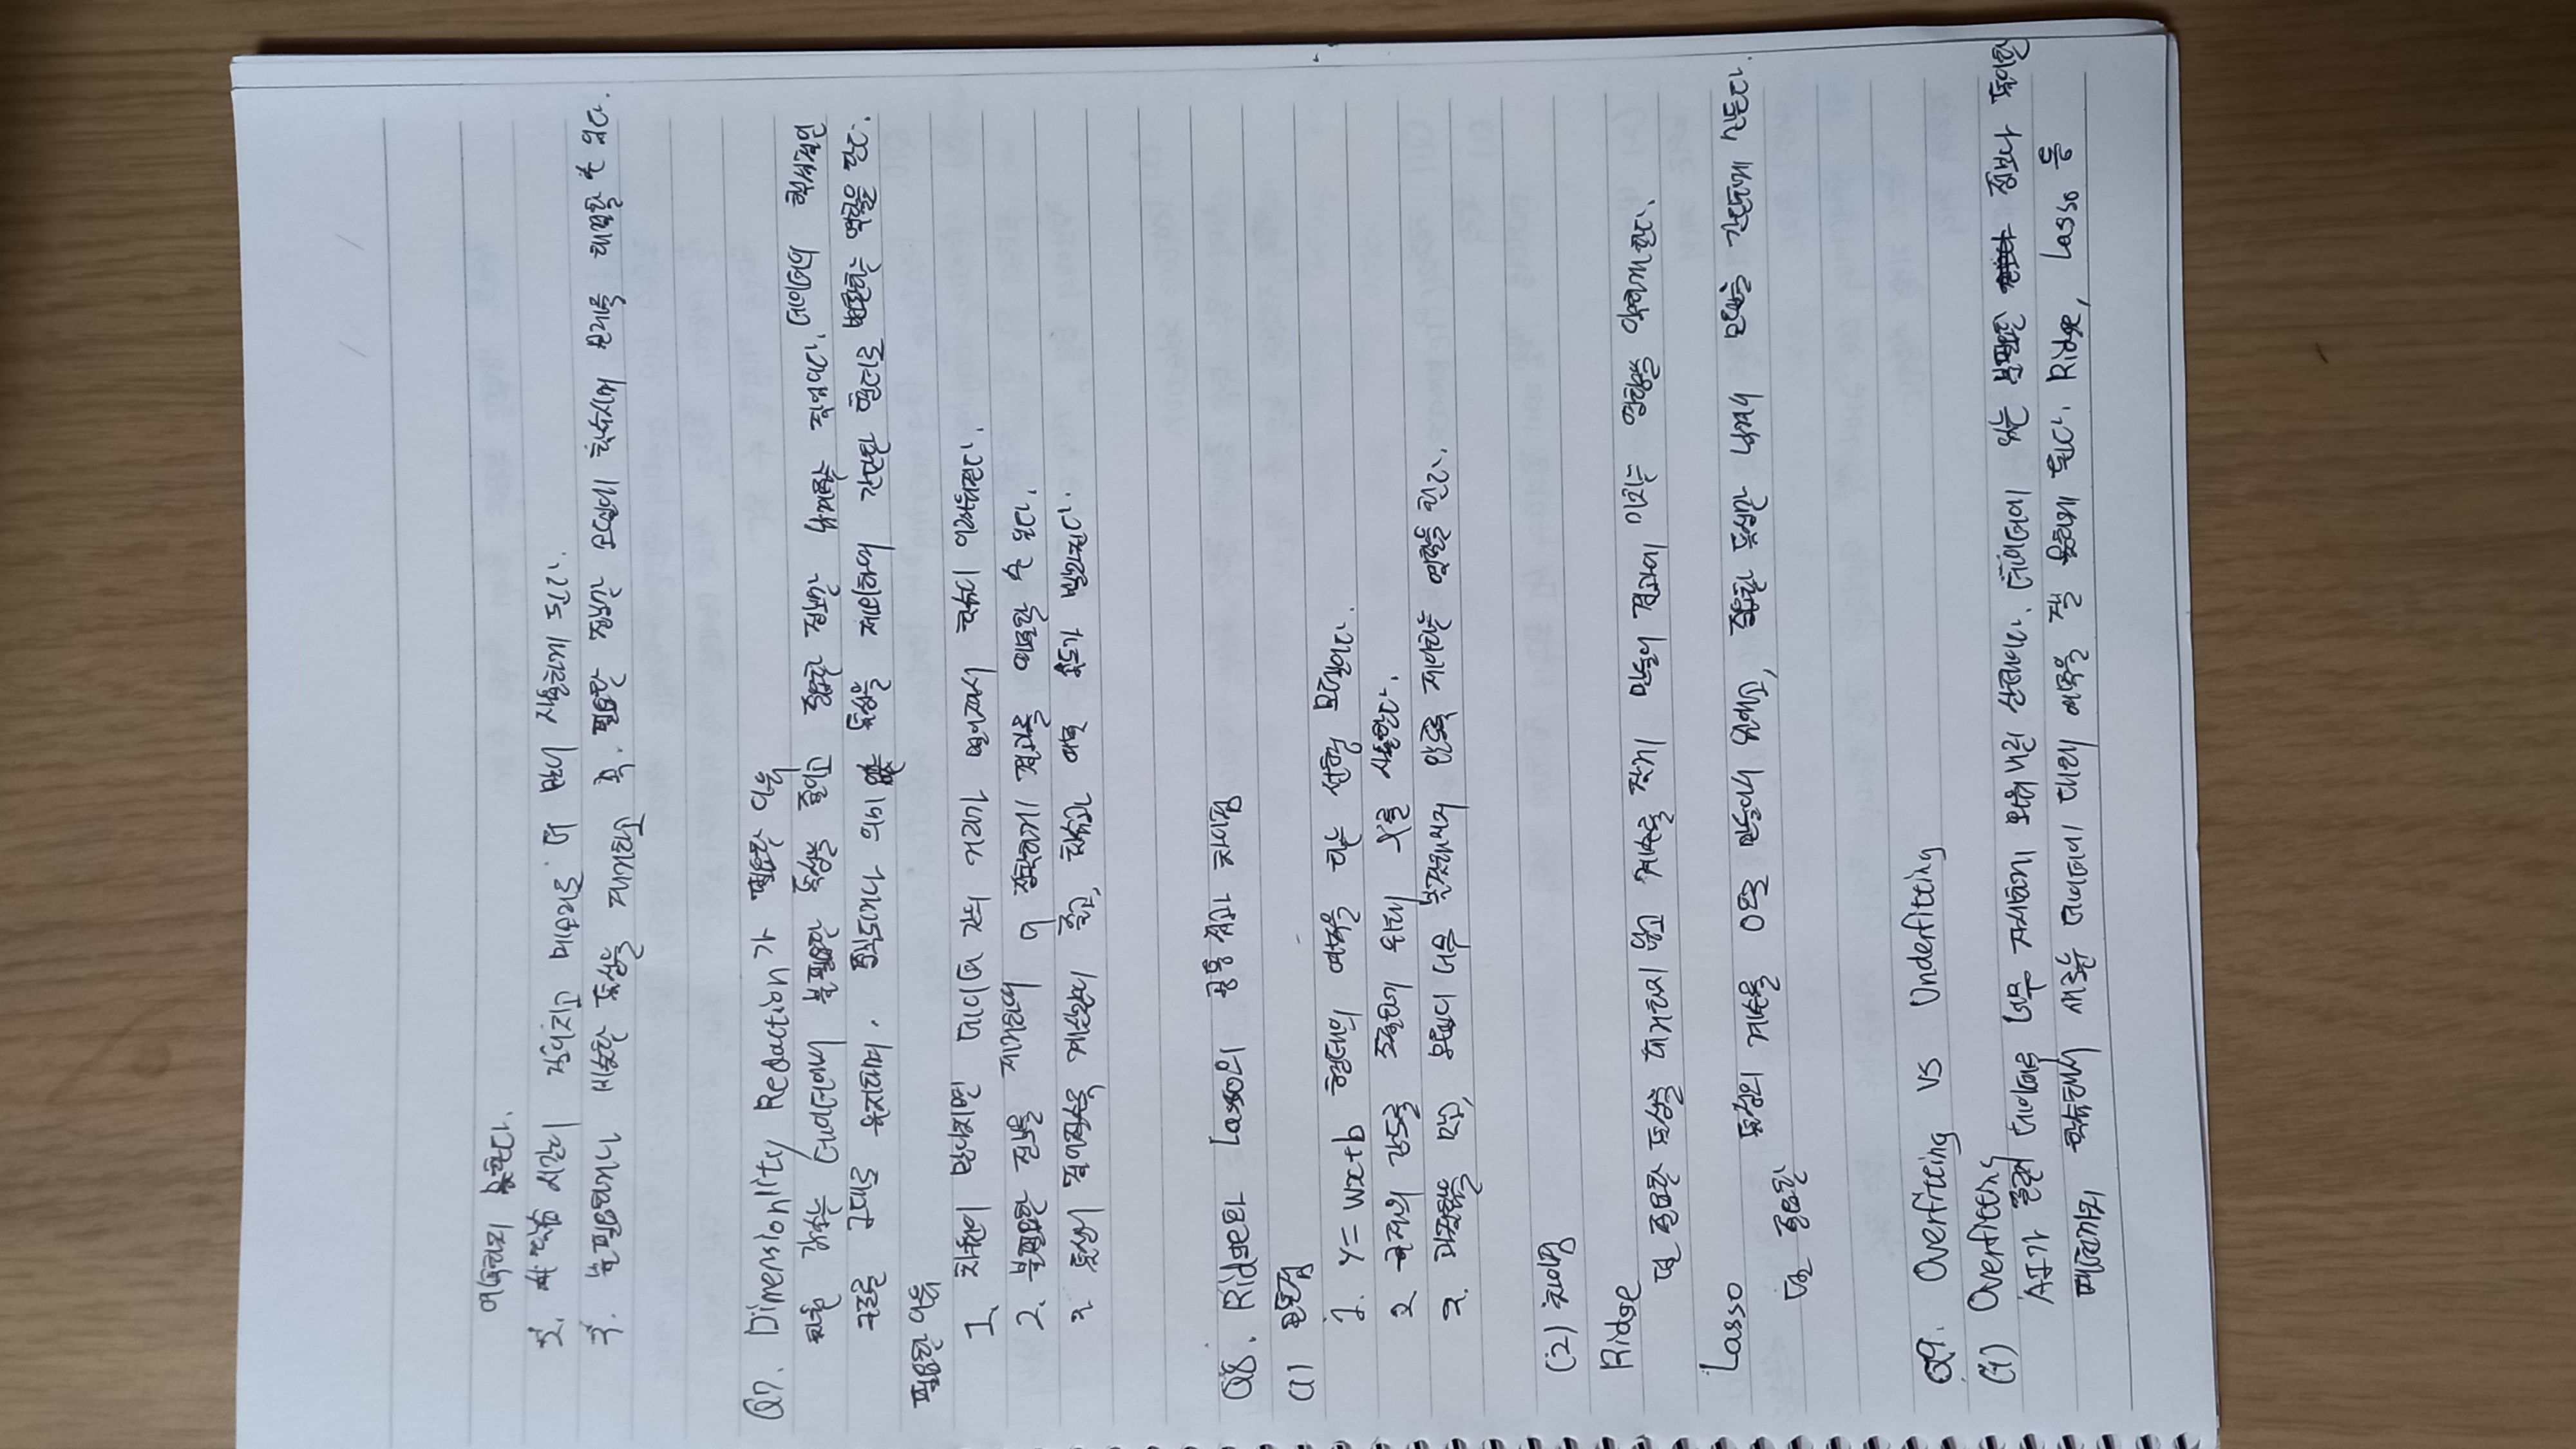 예측하지 못한다.
2. 학습 시간이 길어지고 메모리를 더 많이 사용하게 된다.
3. 불필요하거나 비슷한 특성을 제거하고 꼭 필요한 정보만 모델에 학습시켜 문제를 해결할 수 있다.
Q7. Dimensionlity Reduction가 필요한 이유
차원 감소는 데이터에서 불필요한 특성을 줄이고 중요한 정보만 남기는 작업이다. 데이터의 핵심적인
구조를 그대로 유지하며, 중복되거나 의미 없는 특성을 제외하여 간단한 형태로 변환하는 역할을 한다.
필요한 이유
1. 차원이 많아지면 데이터 간의 거리가 멀어져서 학습이 어려워진다.
2. 불필요한 정보를 제거하여 더 정확하게 결과를 예측할 수 있다.
3. 특성이 적어질수록 계산량이 줄고, 학습과 예측 속도가 빨라진다.
Q8. Ridge와 Lasso의 공통점과 차이점
(1) 공통점
1. y = wx+b 형태의 예측을 하는 선형 모델이다.
2. 규제의 강도를 조절하기 위해 를 사용한다.
3. 과적합을 막고, 모델이 너무 복잡해지지 않도록 제어하는 역할을 한다.
(2) 차이점
Ridge
덜 중요한 특성을 제거하지 않고 계수를 작게 만들어 결과에 미치는 영향을 약하게 한다.
Lasso
덜 중요한 특성의 계수를 0으로 만들어서 없애고, 중요한 특성만 남겨서 모델을 간단하게 만든다.
Q9. Overfitting vs Underfitting
(1) Overfitting
AI가 훈련 데이터를 너무 자세하게 외워버린 상태이다. 데이터에 있는 불필요한 정보나 특이한
패턴까지 학습해서 새로운 데이터에 대해 예측을 잘 못하게 된다. Ridge, Lasso 등